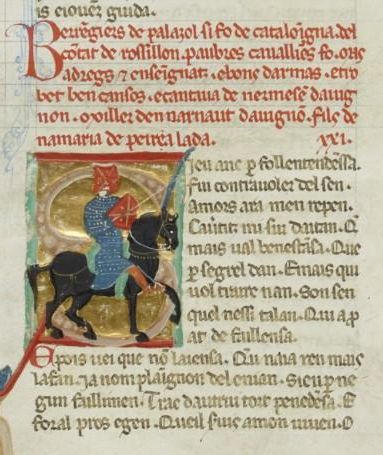 is eiouez guida.
Berengiers de palazol si fo de cataloigna del
cõtat de rossillon. paubres cavalliers fo. mas
adregs ⁊ enseignatz. e bons darmas. e tro
bet ben cansos. e cantava de nermesẽ davig
non. moiller den narnaut davignõ. filz de
na maria de peirea lada. .xxi.
Ieu anc ꝑ follentendẽssa.
fin contravoler del sen.
Amors ara men repen.
mais val benestãsa. Que
ꝑ segrel dan. E mais qui
vol traire nan. Son sen
quel nessi talan. Qui aꝑ
at de fallensa.
E pois vei que nõ laiensa. Qu naia ren mais
lafan. Ja nom plaignon del enian. Si eu ꝑ ne
gun fallimen. Trac dautrui tort penedẽsa. E
foral pros e gen. Queil fius amon viven. O